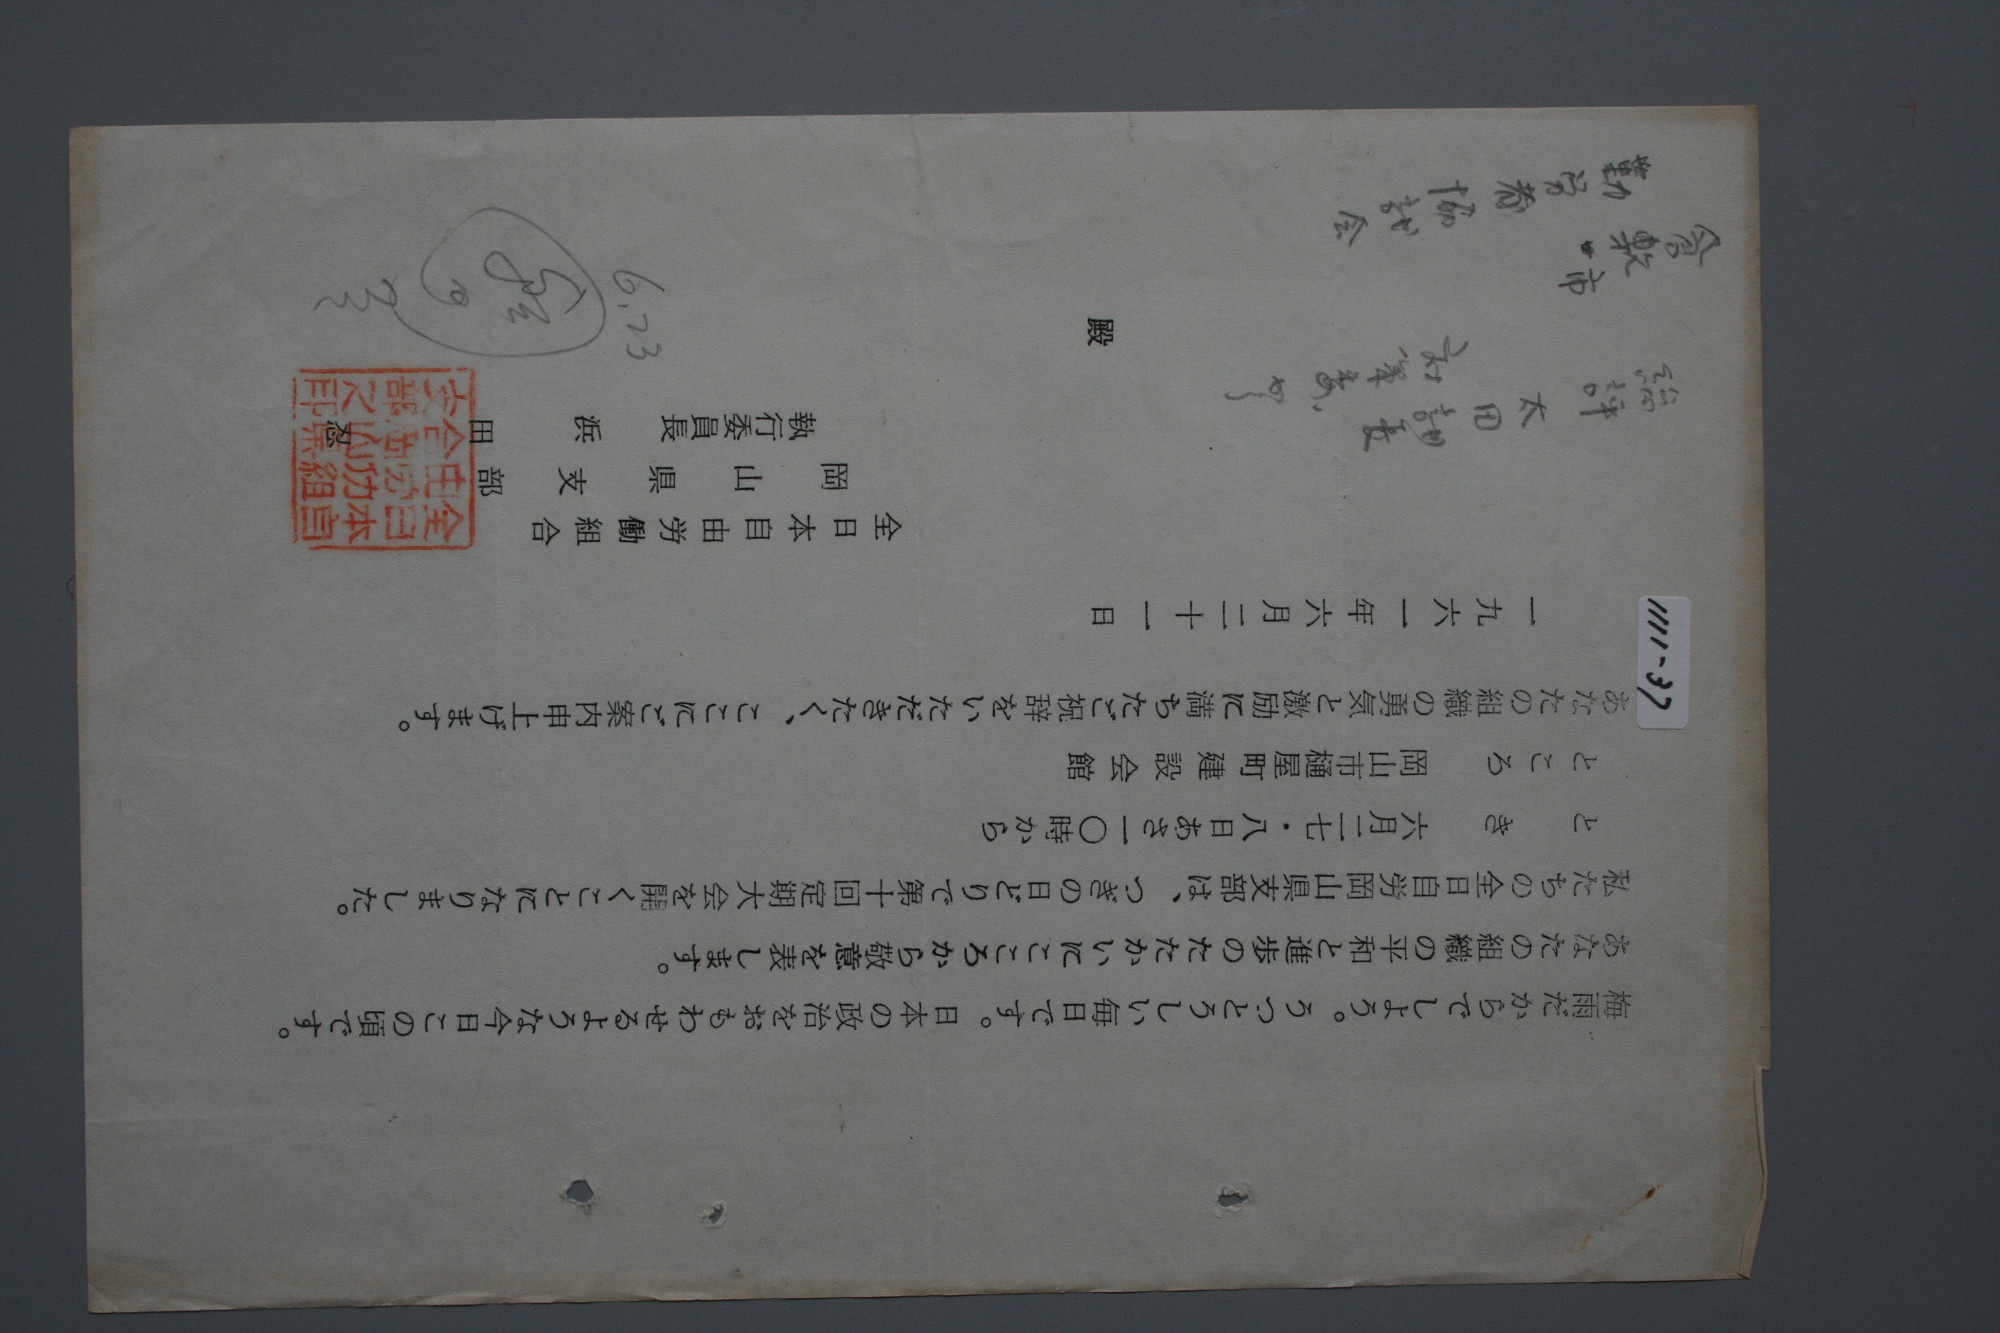 梅雨だからでしよう。うつとうしい毎日です。日本の政治をおもわせるような今日この頃です。
あなたの組織の平和と進歩のたたかいにこころから敬意を表します。
私たちの全日自労岡山県支部は、つぎの日どりで第十回定期大会を開くことになりました。
とき 六月二七・八日あさ一〇時から
ところ 岡山市樋屋町建設会館
あなたの組織の勇気と激励に満ちたご祝辞をいただきたく、ここにご案内申上げます。
一九六一年六月二十一日
全日本自由労働組合
岡山県支部
執行委員長 浜田
倉敷市
勤労者協議会
殿
太田議長
6.23
全日本自
由労働組
合岡山県
支部之印
1111-37